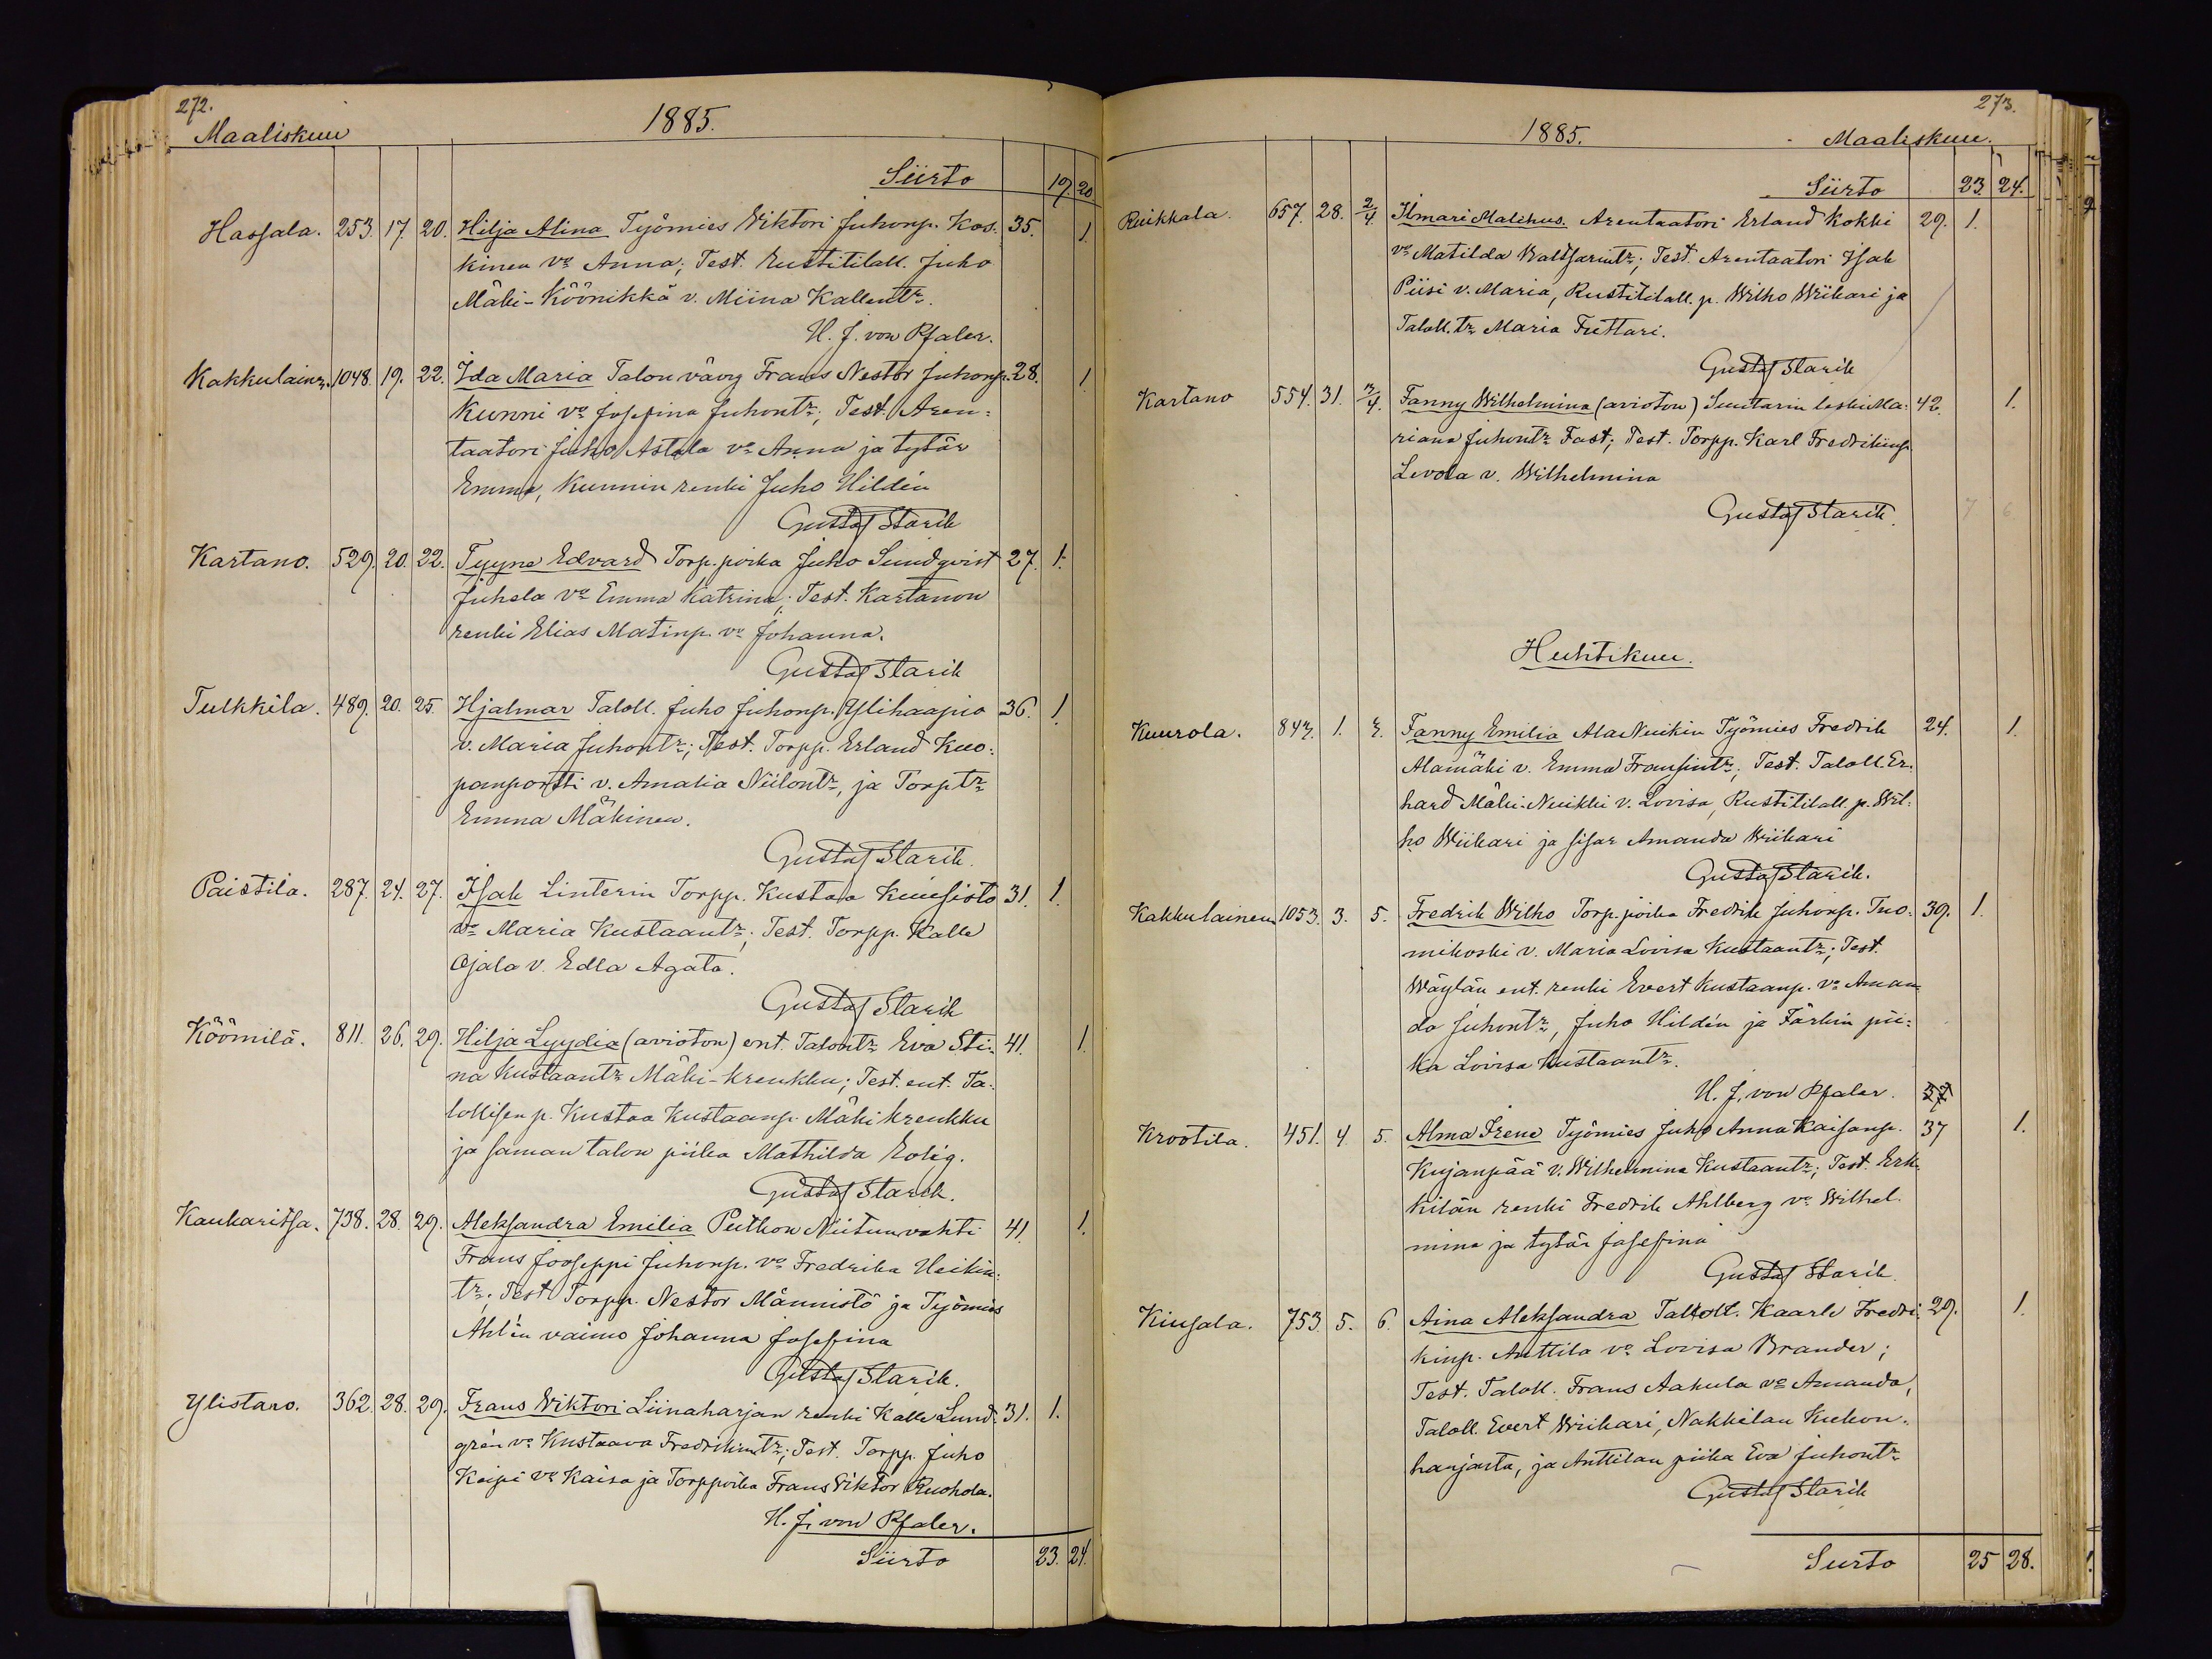 272.
Maaliskuu 1885.
Siirto 19. 20
Hassala. 253. 17. 20. Hilja Alina Työmies Wiktori Juhonp. Kos- 35. 1.
kinen vo Anna; Test. Rustitilall. Juho
Mäki-Köönikkä v. Miina Kallentr.
H. J. von Pfaler.
Kakkulainen. 1048. 19. 22. Ida Maria Talon vävy Frans Nestor Juhonp. 28. 1
Kunni vo Josefina Juhontr; Test. Aren-
taatori Juho Astala vo Anna ja tytär
Emma, Kunnin renki Juho Hildén
Gustaf Starck
Kartano. 529. 20. 22. Tyyne Edvard Torp. poika Juho Sundqvist 27. 1.
Juhela vo Emma Katrina; Test. Kartanon
renki Elias Matinp. vo Johanna.
Gustaf Starck
Tulkkila. 489. 20. 25. Hjalmar Taloll. Juho Juhonp. Ylihaapio 36. 1.
v. Maria Juhontr; Test. Torpp. Erland Kuo-
panportti v. Amalia Niilontr, ja Torptr
Emma Mäkinen.
Gustaf Starck.
Paistila. 287. 24. 27. Isak Linterin Torpp. Kustaa Kuusisto 31. 1.
vo Maria Kustaantr; Test. Torpp. Kalle
Ojala v. Edla Agata.
Gustaf Starck
Köömilä. 811. 26. 29. Hilja Lyydia (avioton) ent. Talontr Eva Sti- 41. 1.
na Kustaantr Mäki-Krenkku; Test. ent. Ta-
lollisen p. Kustaa Kustaanp. Mäki krenkku
ja saman talon piika Mathilda Eolig.
Gustaf Starck.
Kaukaritsa. 738. 28. 29. Aleksandra Emilia Putkon Niitunvahti 41. 1.
Frans Jooseppi Juhonp. vo Fredrika Heikin-
tr. Test. Torpp. Nestor Männistö ja Työmies
Ahlén vaimo Johanna Josefina
Gustaf Starck.
Ylistaro. 362. 28. 29. Frans Wiktori Liinaharjan renki Kalle Lund- 31. 1.
grén vo Kustaava Fredrikintr; Test. Torpp. Juho
Keipi vo Kaisa ja Torppoika Frans Viktor Ruohola.
H. J. von Pfaler.
Siirto 23. 24.
273.
1885. Maaliskuu.
Siirto 23. 24.
Ruikkala. 657. 28. 2/4 Ilmari Malchus. Arentaatori Erland Kokki 29. 1.
vo Matilda Baltsarintr; Test. Arentaatori Isak
Piisi v. Maria, Rustitilall. p. Wilho Wiikari ja
Taloll. tr Maria Futtari.
Gustaf Starck
Kartano 554. 31. 3/4. Fanny Wilhelmina (avioton) Suutarin leski Ma- 42. 1.
riana Juhontr Fast; Test. Torpp. Karl Fredrikinp.
Levola v. Wilhelmina
Gustaf Starck.
7 6
Huhtikuu.
Kuurola. 847. 1. 3. Fanny Emilia Ala Nuikin Työmies Fredrik 24. 1.
Alamäki v. Emma Fransintr; Test. Taloll. Er-
hard Mäki-Nuikki v. Lovisa, Rustitilall. p. Wil-
ho Wiikari ja sisar Amanda Wiikari
Gustaf Starck.
Kakkulainen 1053. 3. 5. Fredrik Wilho Torp. poika Fredrik Juhonp. Tuo- 39. 1.
mikoski v. Maria Lovisa Kustaantr; Test.
Wäylän ent. renki Evert Kustaanp. vo Aman-
da Juhontr, Juho Hildén ja Färkin pii-
ka Lovisa Kustaantr.
H. J. von Pfaler.
Krootila. 451. 4. 5. Alma Irene Työmies Juho Anna Kaisanp. 37 1.
Kujanpää v. Wilhelmina Kustaantr; Test. Erk-
kilän renki Fredrik Ahlberg vo Wilhel-
mina ja tytär Josefina
Gustaf Starck.
Kiusala. 753. 5. 6. Aina Aleksandra Taloll. Kaarle Fredri- 29. 1.
kinp. Anttila vo Lovisa Brander;
Test. Taloll. Frans Aakula vo Amanda,
Taloll. Evert Wiikari, Nakkilan Kukon-
harjasta, ja Anttilan piika Eva Juhontr
Gustaf Starck
Siirto 25 28.